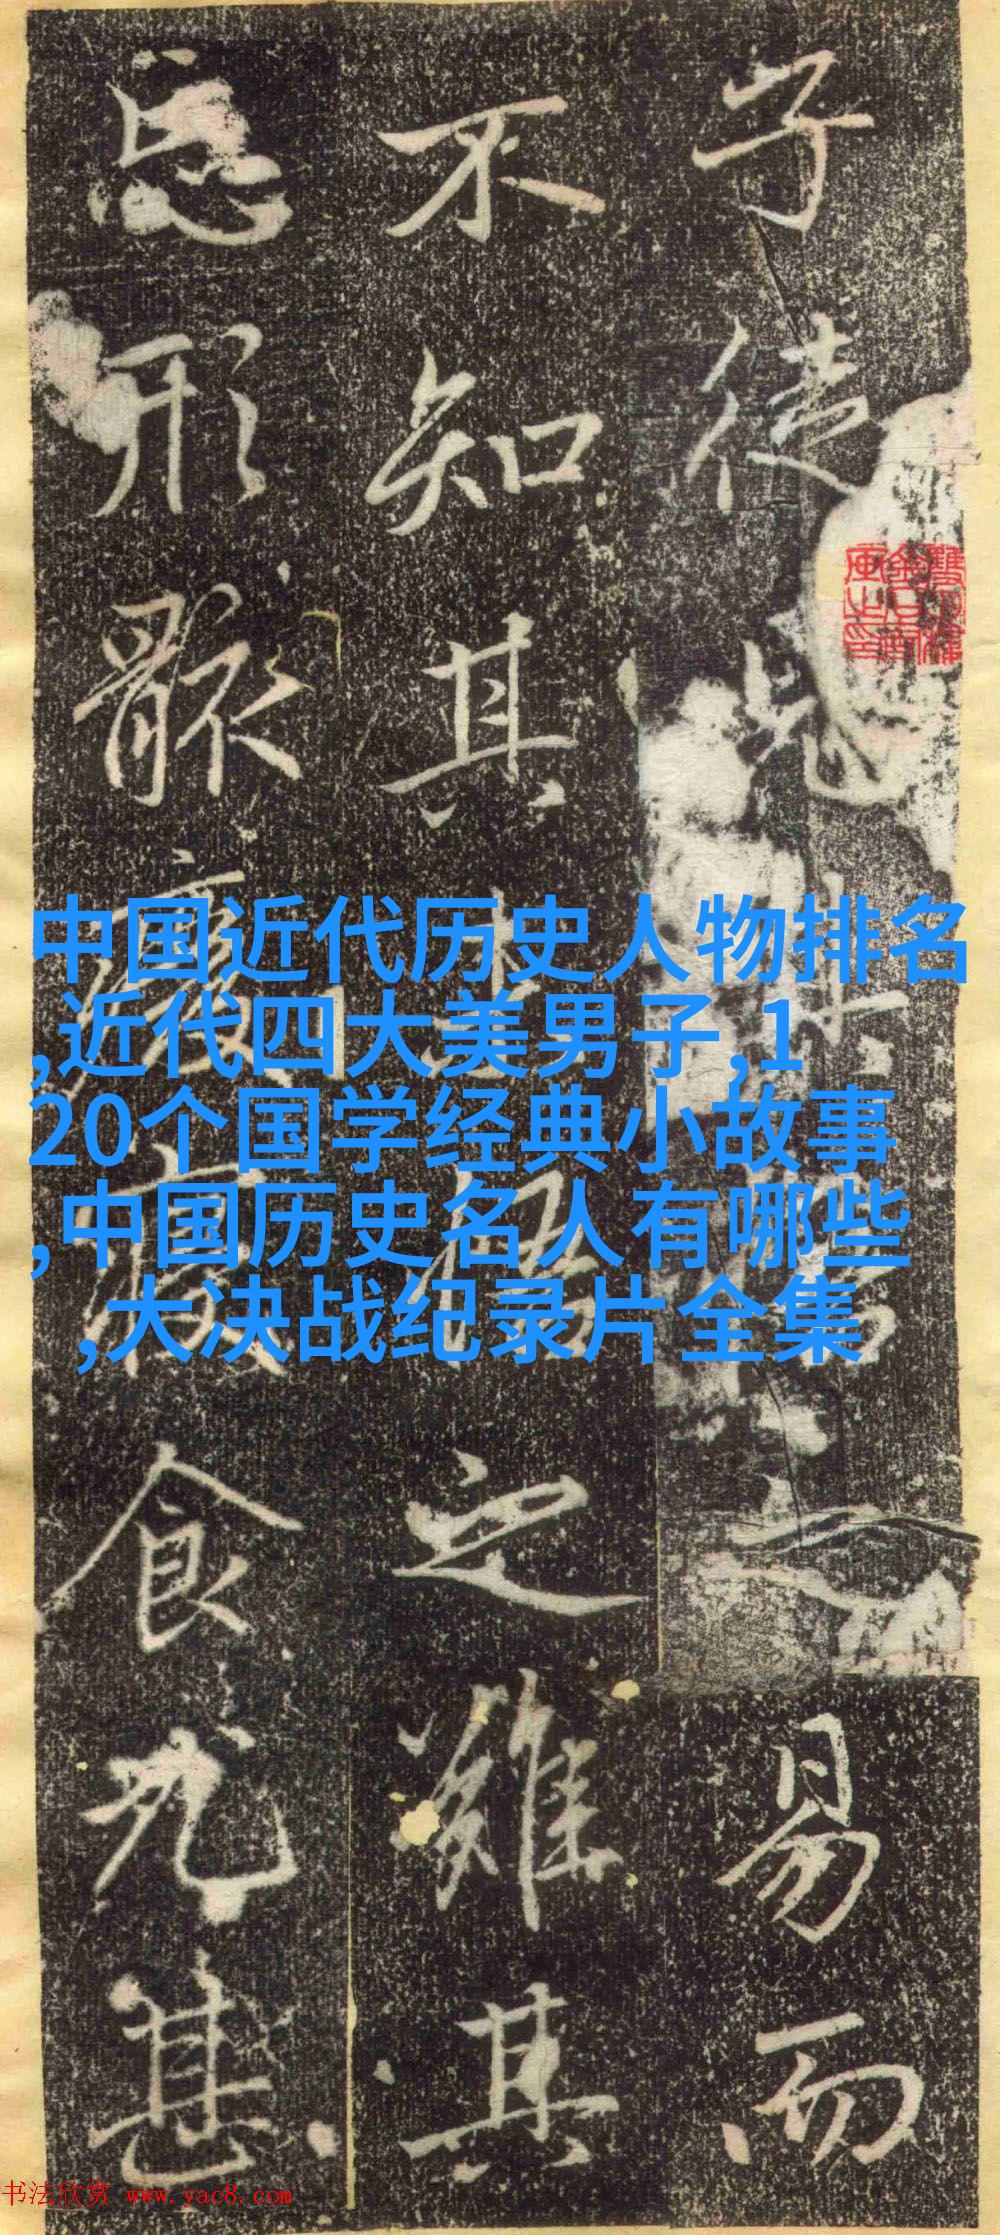 子徒見其 之易而
不知其 之難其
忘形骸廢 食尤甚
中国近代历史人物排名
,近代四大美男子,1
20个国学经典小故事
,中国历史名人有哪些
,大决战纪录片全集
书法欣赏 www.yac8.com